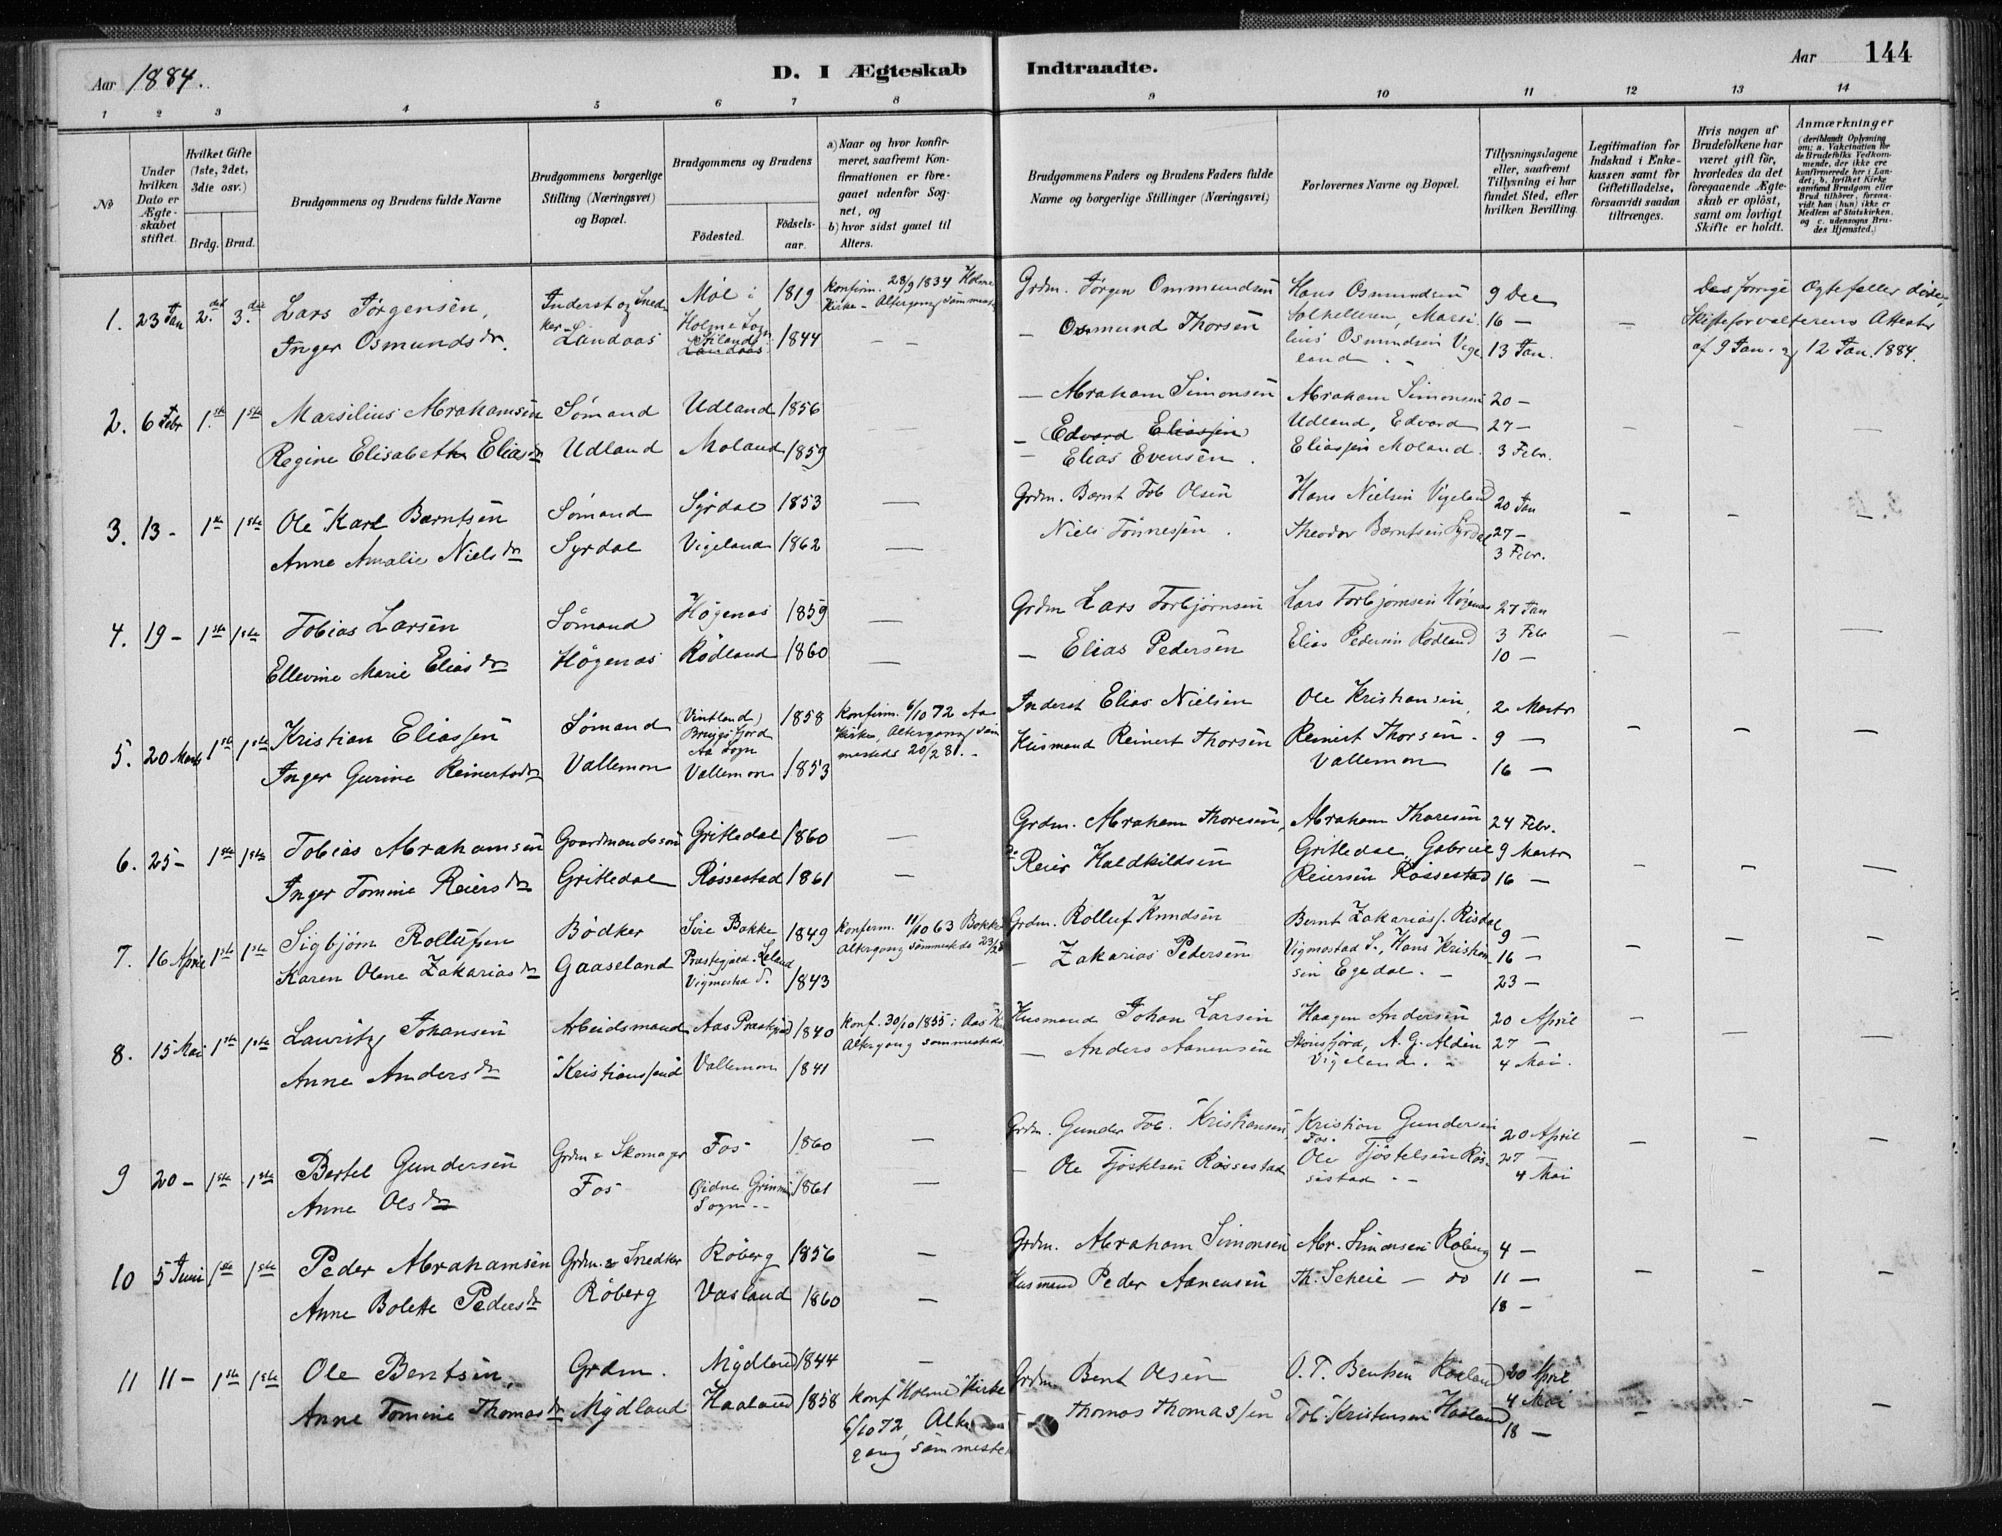 Aar 1884.
D. I Ægteskab Indtraadte.
Aar 144
1 2 3 4 5 6 7 8 9 10 11 12 13 14
No
Under hvilken Dato er Ægte-skabet stiftet.
Hvilket Gifte (1ste, 2det, 3die osv.)
Brdg. Brud.
Brudgommens og Brudens fulde Navne
Brudgommens borgerlige Stilling (Næringsvei) og Bopæl.
Brudgommens og Brudens
Fødested.
Fødsels-aar.
a) Naar og hvor konfir-meret, saafremt Kon-firmationen er fore-gaaet udenfor Sog-net, og
b) hvor sidst gaaet til Alters.
Brudgommens Faders og Brudens Faders fulde Navne og borgerlige Stillinger (Næringsvei)
Forlovernes Navne og Bopæl.
Tillysningsdagene eller, saafremt Tillysning ei har fundet Sted, efter hvilken Bevilling.
Legitimation for Indskud i Enke-kassen samt for Giftetilladelse, forsaavidt saadan tiltrænges.
Hvis nogen af Brudefolkene har været gift før, hvorledes da det foregaaende Ægte-skab er opløst, samt om lovligt Skifte er holdt.
Anmærkninger
(deriblandt Oplysning om: a. Vakcination for de Brudefolks Vedkom-mende, der ikke ere konfirmerede her i Lan-det; b. hvilket Kirke-samfund Brudgom eller Brud tilhører, forsaa-vidt han (hun) ikke er Medlem af Statskirken, og c. udensogns Bru-des Hjemsted.)
1. 23 Jan 2det 3die Lars Jørgensen, Inderst og Sned-ker - Landaas Møl i Holme Sogn 1819 Konfirm. 28/9 1834 Holme Kirke - Altergang sammesteds Grdm. Jørgen Ommundsen Hans Osmundsen 9 Dec
Inger Osmundsdr. Landaas 1844 — — — Osmund Thorsen Marsilius Osmundsen Vigeland 16 — 13 Jan. — forrige Ægtefæller døde, Skifteforvalterens Attester af 9 Jan. og 12 Jan. 1884.
2. 6 Febr 1ste 1ste Marsilius Abrahamsen Sømand Udland 1856 — — Abraham Simonsen Abraham Simonsen 20 —
Regine Elisabeth Eliasdr Udland Moland 1859 — — Edvard Eliassen Udland, Edvard 27 — — — —
— Elias Evensen. Eliassen Moland. 3 Febr.
3. 13 - 1ste 1ste Ole Karl Berntsen Sømand Syrdal 1853 — Grdm. Bernt Tob Olsen Hans Nielsen Vigeland 20 Jan
Anne Amalie Nielsdr Syrdal Vigeland 1862 — Niels Tønnessen. Theodor Berntsen Syrdal 27 — — — —
3 Febr.
4. 19 - 1ste 1ste Tobias Larsen Sømand Høgenas 1859 — Grdm Lars Torbjørnsen Lars Torbjørnsen Høgenas 27 Jan
Ellevine Marie Eliasdr Høgenas Rødland 1860 — — Elias Pedersen Elias Pedersen Rødland 3 Febr — — —
10 —
5. 20 Marts 1ste 1ste Kristian Eliassen Sømand (Vintland) Aa Sogn 1858 Konfirm. 6/10 72 Aa Kirke, Altergang sammesteds 20/2 81. - Inderst Elias Nielsen Ole Kristiansen, 2 Marts
Inger Gurine Reinertsdr Vallemon Vallemon 1853 Husmand Reinert Thorsen Reinert Thorsen. Vallemon 9 — — — —
16 —
6. 25 - 1ste 1ste Tobias Abrahamsen Gaardmandssøn Gritledal 1860 — Grdm. Abraham Thoresen, Abraham Thoresen 24 Febr.
Inger Tomine Reiersdr Gritledal Røssestad 1861 — do Reier Gritledal, Gabriel Reiersen Røssestad 9 Marts 16 — — — —
7. 16 April 1ste 1ste Sigbjørn Rollufsen Bødker Sire Bakke Præstegjeld 1849 Konfirm. 11/10 63 Bakke Altergang sammesteds Grdm. Rolluf Knudsen Bernt Zakariass. Risdal 9 —
Karen Olene Zakariasdr Gaaseland Leland Vigmostad S. 1843 — Zakarias Pedersen Vigmostad S., Hans Kristiansen Egedal. — 16 — — — —
23 —
8. 15 Mai 1ste 1ste Lauritz Johansen Arbeidsmand Aas Præstgjeld 1840 Konf. 30/10 1855 i Aas K. Altergang sammesteds Husmand Johan Larsen Haagen Andersen 20 April
Anne Andersdr Kristianssand Vallemon 1841 — Anders Aanensen A. G. Alden Vigeland. — 27 — — — —
4 Mai.
9 20 - 1ste 1ste Bertel Gundersen Grdm & Skomager Fos 1860 — Grdm. Gunder Tob. Kristiansen, Kristian Gundersen Fos. 20 April
Anne Olsdr Fos Øidne Sogn 1861 — — Ole Tjøstelsen Røssestad Ole Tjøstelsen Røs-sestad. — 27 — — — —
4 Mai
10 5 Juni 1ste 1ste Peder Abrahamsen Grdm. & Snedker Røberg 1856 — Grdm. Abraham Simonsen Abr. Simonsen Røberg 4 —
Anne Bolette Pedersdr Røberg Vasland 1860 — Husmand Peder Aanensen Th. Scheie — do 11 — — — —
18 —
11 11 - 1ste 1ste Ole Bentsen, Grdm. Mydland 1844 — Grdm Bent Olsen O. T. Bentsen 20 April
Anne Tomine Thomasdr Mydland Haaland 1858 Konf Holme Kirke 6/10 72, Altergang sammesteds Thomas Thomassen Tob. Kristensen Haaland 4 Mai — — —
18 —